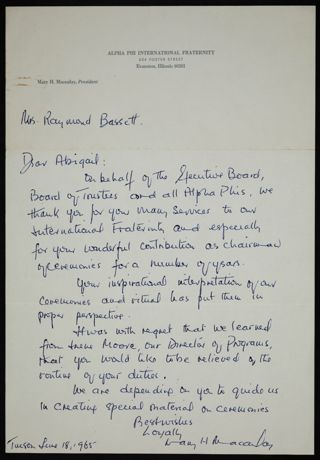 ALPHA PHI INTERNATIONAL FRATERNITY
Evanston, Illinois 60201
Mary H. Macaulay, President
Mrs. Raymond Bassett.
Dear Abigail:
On behalf of the Executive Board,
Board of Trustees and all Alpha Phis, we
thank you for your many services to our
International Fraternity and especially
for your wonderful contribution as chairman
of ceremonies for a number of years.
Your inspirational interpretation of our
ceremonies and ritual has put them in
proper perspective.
It was with regret that we learned
from Irene Moore, our Director of Programs,
that you would like to be relieved of the
routine of your duties.
We are depending on you to guide us
in creating special material on ceremonies
Best wishes
Loyally
Mary H Macaulay
Tucson June 18, 1965